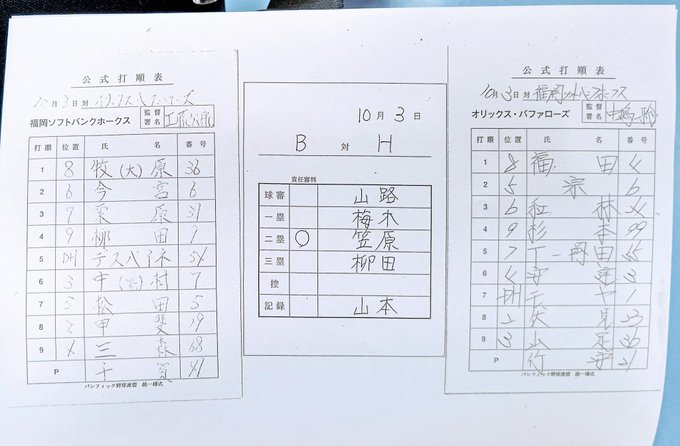 公式打順表
10月3日対オリックス・バファローズ
福岡ソフトバンクホークス 監督署名 工藤公康
打順 位置 氏名 番号
1 8 牧(大)原 36
2 6 今宮 6
3 7 栗原 31
4 9 柳田 9
5 DH デスパイネ 54
6 3 中(晃)村 7
7 5 松田 5
8 2 甲斐 19
9 4 三森 68
P 千賀 41
パシフィック野球連盟 統一様式
10月3日
B 対 H
責任審判
球審 山路
一塁 梅木
二塁 ○ 笠原
三塁 柳田
控
記録 山本
公式打順表
10月3日対福岡ソフトバンクホークス
オリックス・バファローズ 監督署名 中嶋聡
打順 位置 氏名 番号
1 8 福田 4
2 5 宗 6
3 6 紅林 24
4 9 杉本 99
5 7 T-岡田 55
6 4 安達 3
7 DH
8 2 伏見 23
9 3 山足 36
P 竹安 21
パシフィック野球連盟 統一様式